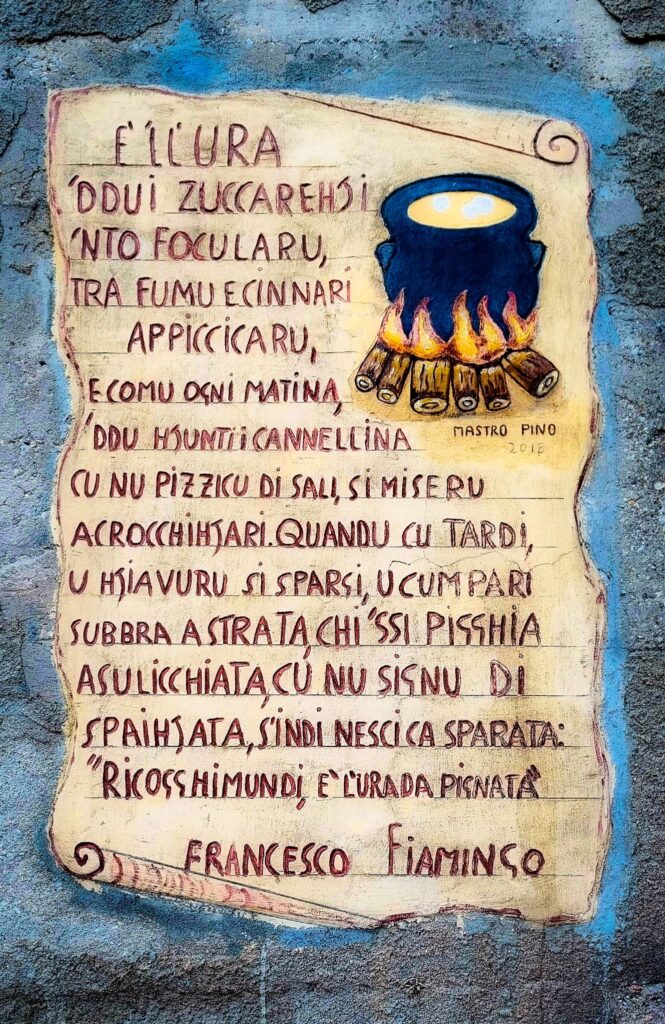 E' L'URA
'DDUI ZUCCAREHJI
'NTO FOCULARU,
TRA FUMU E CINNARI
APPICCICARU,
E COMU OGNI MATINA,
'DDU HJUNTI I CANNELLINA
CU NU PIZZICU DI SALI, SI MISERU
A CROCCHIHJARI. QUANDU CU TARDI,
U HJIAVURU SI SPARGI, U CUMPARI
SUBBRA A STRATA, CHI 'SSI PIGGHIA
A SULICCHIATA, CÙ NU SIGNU DI
SPAIHJATA, S'INDI NESCI CA SPARATA:
"RICOGGHIMUNDI, E' L'URA DA PIGNATA"
FRANCESCO FIAMINGO
MASTRO PINO
2018